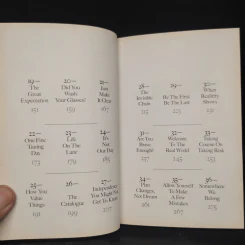 19—
The
Great
Expectation
151
20—
Did You
Wash
Your Glasses?
159
21—
167
22—
One Fine
Tuning
Day
173
23—
Life
On The
Lane
179
24—
It's
Not
Our Day
185
25—
How
You
Value
Things
191
26—
The
Catalogue
199
27—
Independence
You Might
Get To Know
28—
The
Invisible
Chain
215
29—
Be The First
Be The Last
30—
When
Shows
31—
Are You
Brave
Enough?
237
32—
Welcome
To The Real
World
245
33—
Taking
Course Or
Taking Rest
34—
Plan
Changes,
Not Dream
261
35—
Allow Yourself
To Make
A Few
Mistakes
267
36—
Somewhere
We
Belong
275